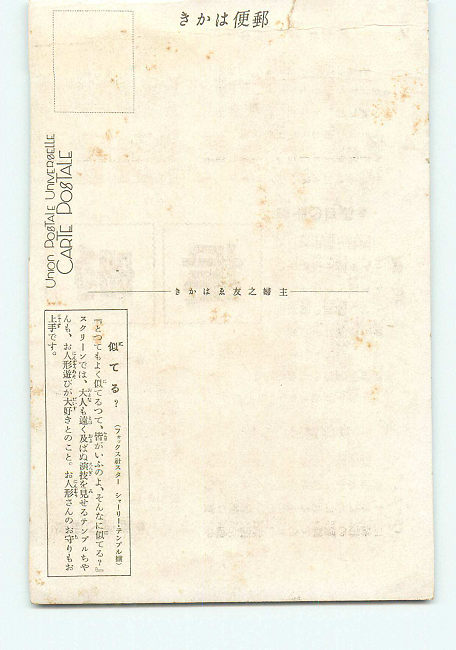 郵便はかき
UNION POSTALE UNIVERSELLE
CARTE POSTALE
主婦之友ゑはかき
似てる？
（フォックス社スター シャーリー・テンプル嬢）
『とつてもよく似てるつて、皆がいふのよ、そんなに似てる？』
スクリーンでは、大人も遠く及ばぬ演技を見せるテンプルちや
んも、お人形遊びが大好きとのこと。お人形さんのお守りもお
上手です。